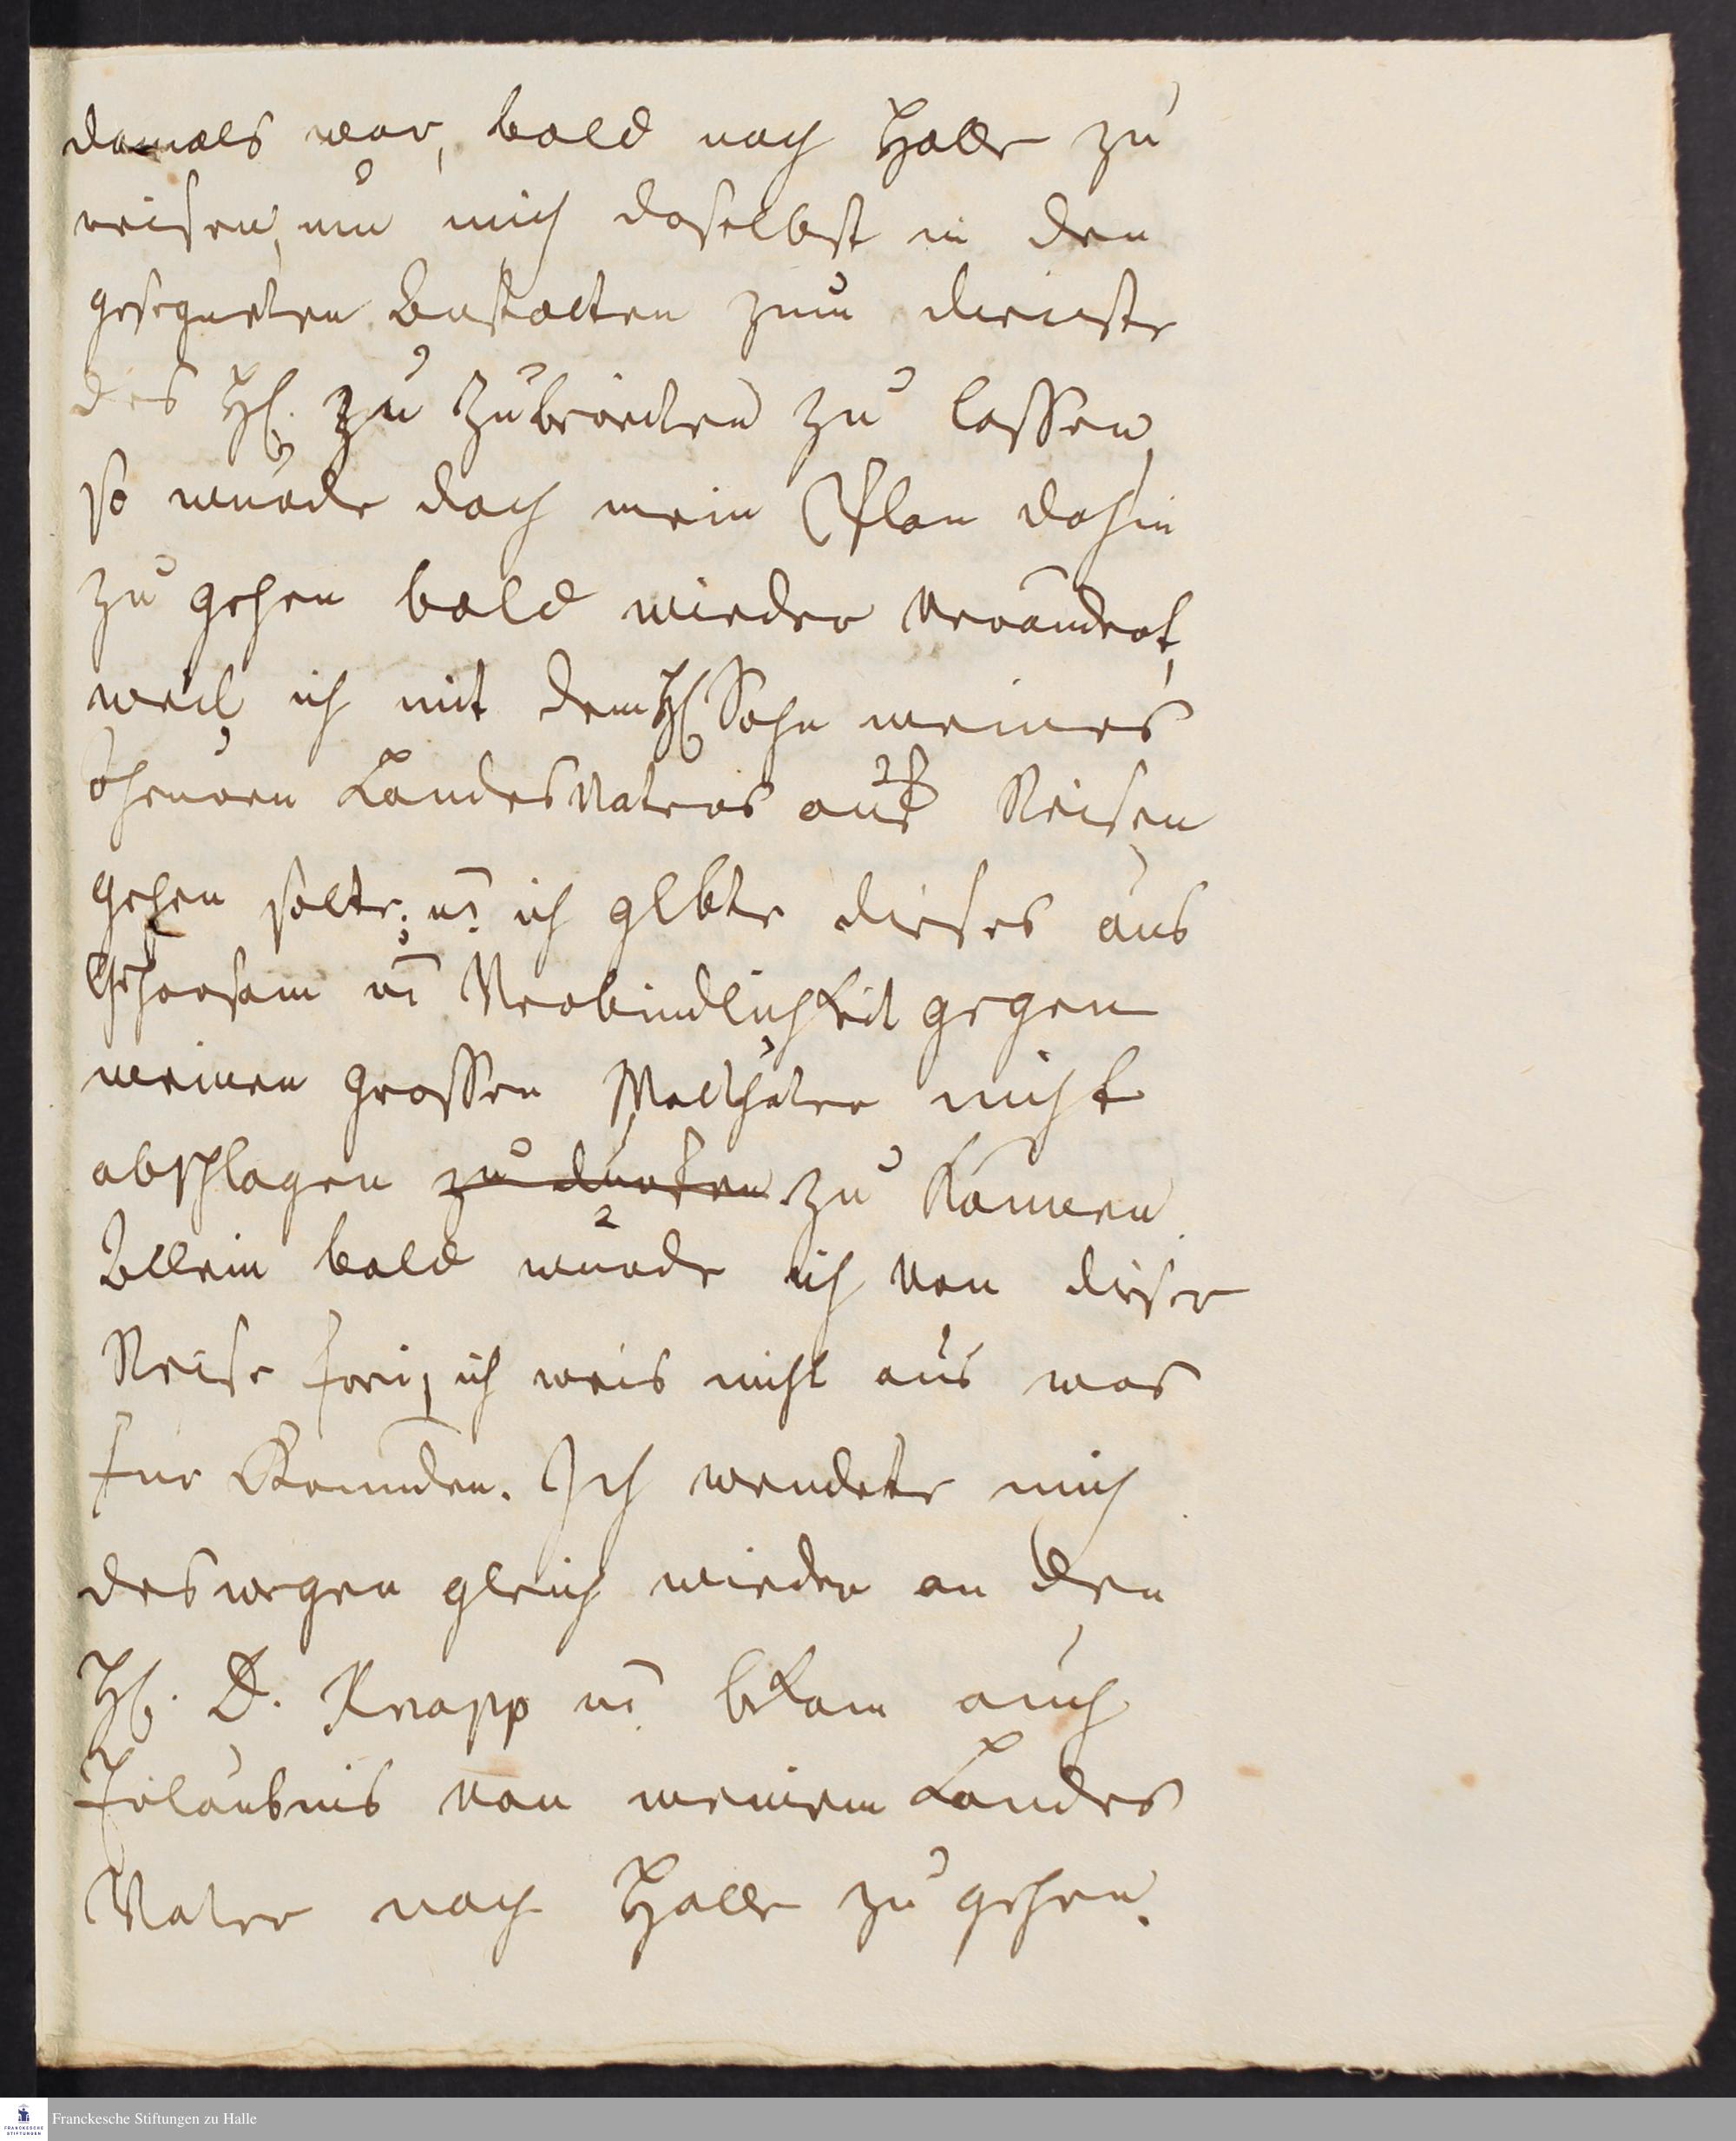 damals war, bald nach Halle zu
reisen, um mich daselbst in den
gesegneten Anstalten zum dienste
des H. zu zubereiten zu lassen,
so wurde doch mein Plan dahin
zu gehen bald wieder verändert,
weil ich mit dem H. Sohn meines
theuren Landes Vaters auf Reisen
gehen solte; u. ich glbte dieses aus
Gehorsam u. Verbindlichkeit gegen
meinen grossen Wolthäter nicht
abschlagen zu dürfen zu können.
Allein bald wurde ich von dieser
Reise frei, ich weis nicht aus was
für Gründen. Ich wendete mich
deswegen gleich wieder an den
H. D. Knapp u. bekam auch
Erlaubnis von meinem Landes
Vater nach Halle zu gehen.
Franckesche Stiftungen zu Halle